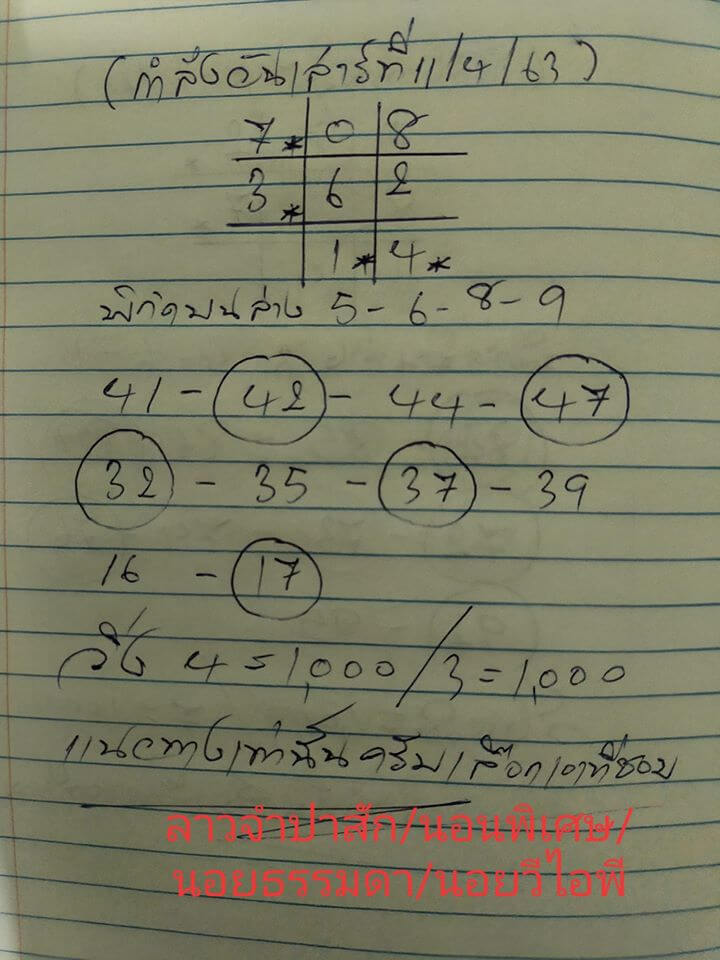 (กำลังวันเสาร์ที่ 11/4/63)
7* 0 8
3* 6 2
1* 4*
พิกัดบนล่าง 5-6-8-9
41 - 42 - 44 - 47
32 - 35 - 37 - 39
16 - 17
วิ่ง 4 = 1,000 / 3 = 1,000
แนวทางเท่านั้นครับเลือกเอาที่ชอบ
ลาวจำปาสัก/นอนพิเศษ/
นอยธรรมดา/นอยวีไอพี